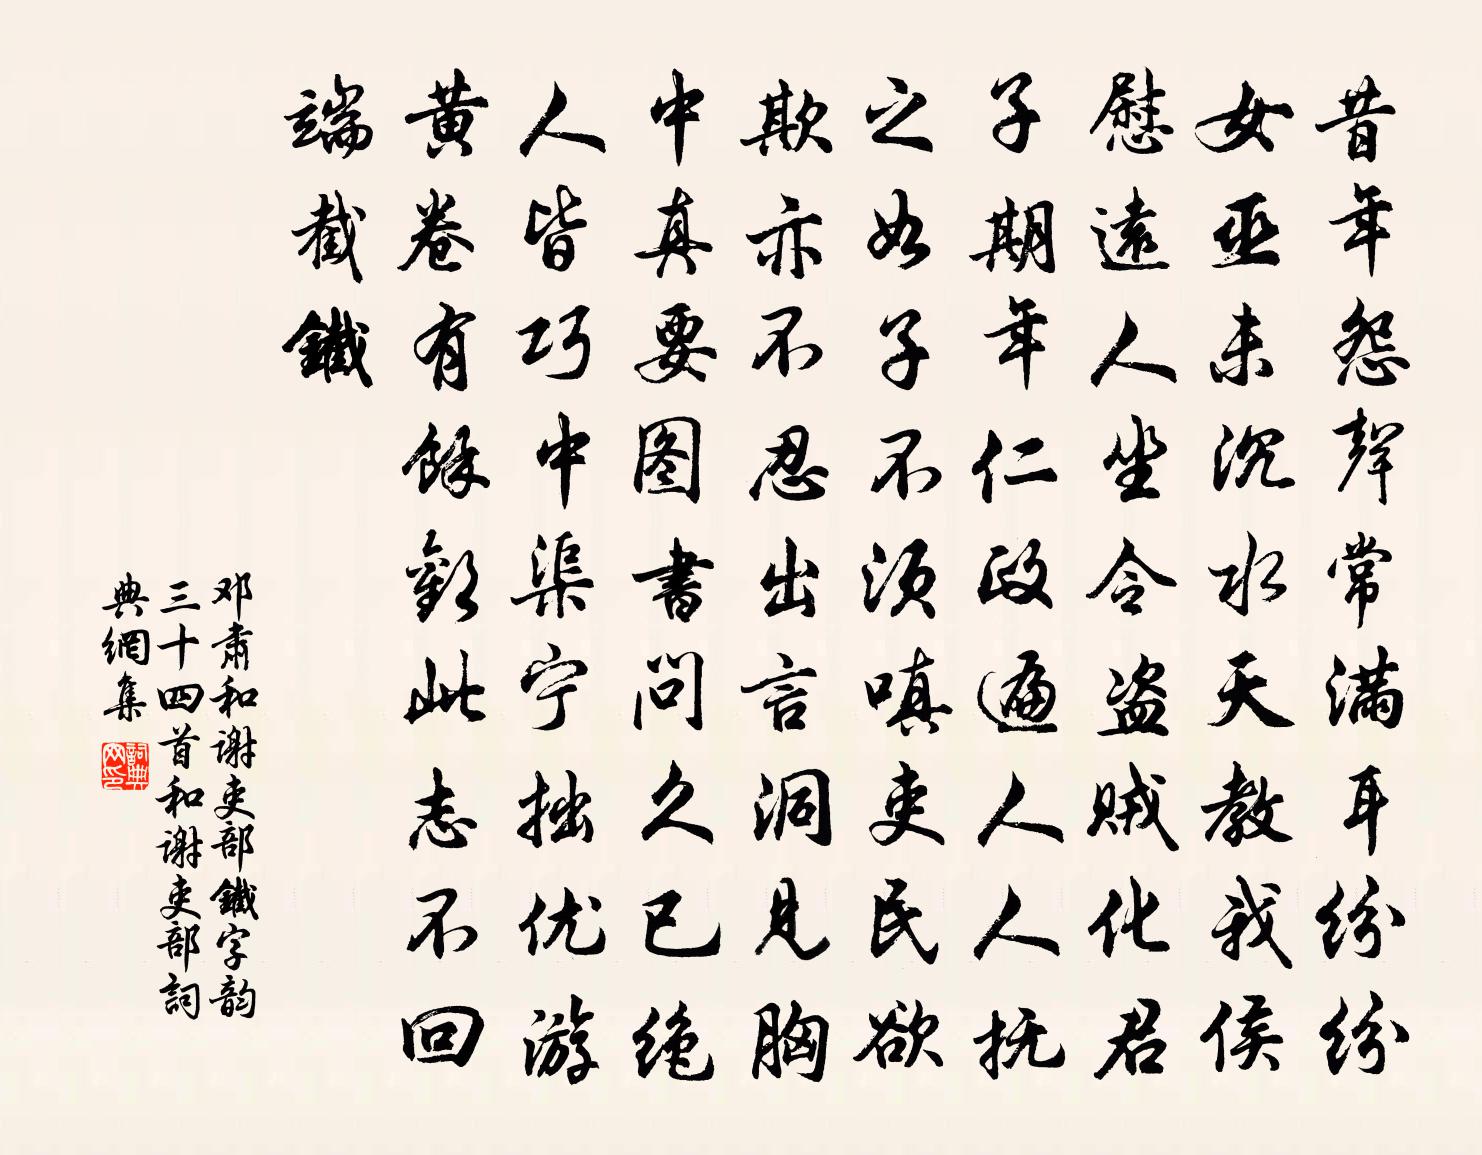 昔年怨聲常满耳纷纷
女巫未沉水天教我侯
慰遠人坐令盗贼化君
子期年仁政遍人人抚
之如子不须嗔吏民欲
欺亦不忍出言洞见胸
中真要图書问久已绝
人皆巧中渠宁拙优游
黄卷有餘歡此志不回
端截鐵
邓肃和谢吏部鐵字韵
三十四首和谢吏部詞
典網集
詞典网印